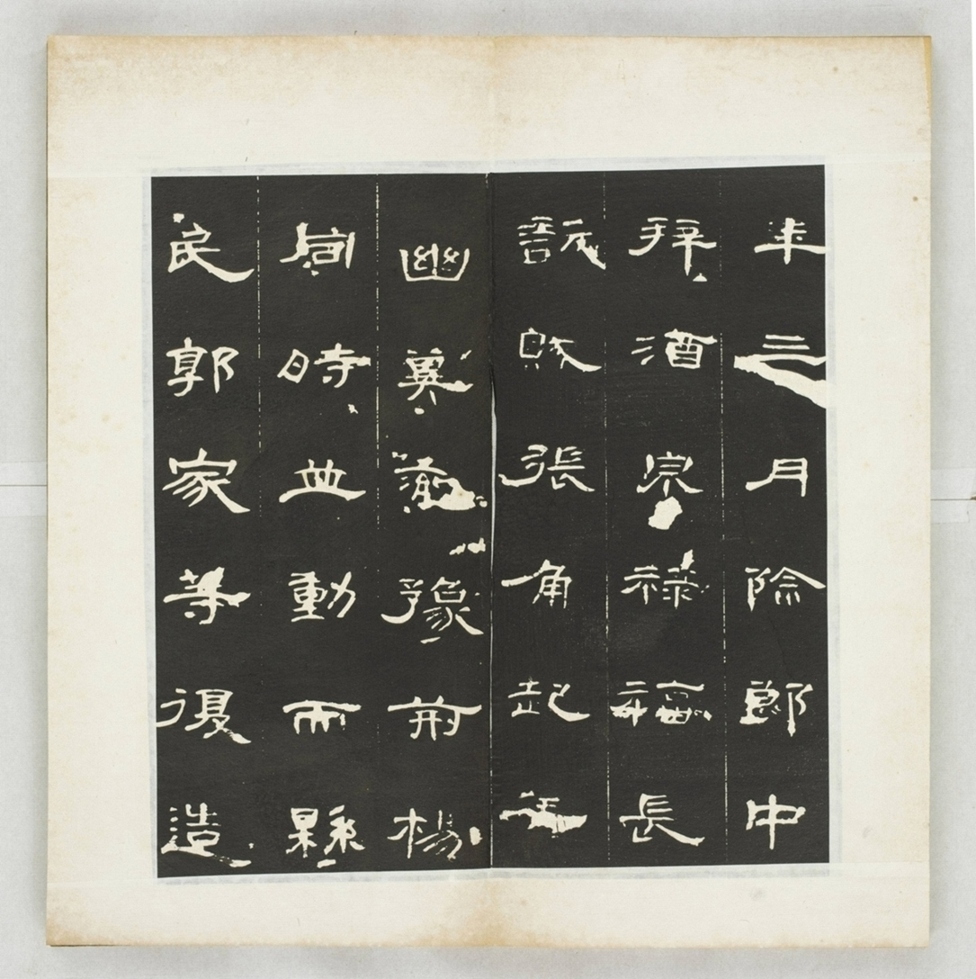 年三月除郎中
拜酒泉祿福長
訞賊張角起兵
幽冀兗豫荊楊
同時並動而縣
民郭家等復造